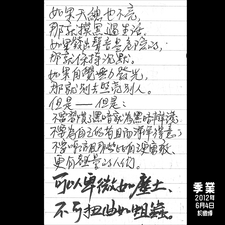 如果天總也不亮，
那就摸黑過生活；
如果發出聲音是危險的，
那就保持沉默；
如果自覺無力發光，
那就別去照亮別人。
但是——但是：
不要習慣了黑暗就為黑暗辯護；
不要為自己的苟且而得意；
不要嘲諷那些比自己更勇敢、
更有熱量的人們。
可以卑微如塵土，
不可扭曲如蛆蟲。
季業
2012年
6月4日